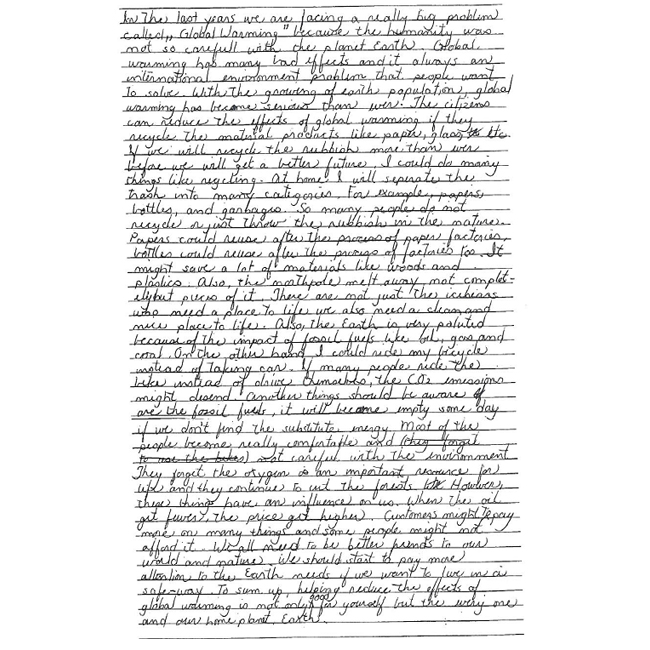 In the last years we are facing a really big problem
called „Global Warming" because the humanity was
not so carefull with the planet Earth. Global
warming has many bad effects and it always an
international environment problem that people want
to solve. With the growing of earth population, global
warming has become serious than ever. The citizens
can reduce the effects of global warming if they
recycle the material products like paper, glass etc.
If we will recycle the rubbish more than ever
before we will get a better future. I could do many
things like recycling. At home I will separate the
trash into many categories. For example, papers,
bottles, and garbages. So many people do not
recycle or just throw the rubbish in the nature.
Papers could reuse after the process of paper factories,
bottles could reuse after the process of factories too. It
might save a lot of materials like woods and
plastics. Also, the northpole melt away not complet-
ely but pieces of it. There are not just the icebears
who need a place to life we also need a clean and
nice place to life. Also, the Earth is very poluted
because of the impact of fossil fuels like oil, gas and
coal. On the other hand, I could ride my bicycle
instead of taking car. If many people ride the
bike instead of drive themselves, the CO2 emissions
might disend. Another things should be aware of
are the fossil fuels, it will become empty some day
if we don't find the substitute energy. Most of the
people become really comfortable and (they forget
to use the bikes) not careful with the environment
They forget the oxygen is an important resource for
life and they continue to cut the forests. However,
these things have an influence on us. When the oil
get fewer, the price get higher. Customers might to pay
more on many things and some people might not
afford it. We all need to be better friends to our
world and nature. We should start to pay more
attention to the Earth needs if we want to live in a
safe-way. To sum up, helping reduce the effects of
global warming is not only good for yourself but the every one
and our home planet, Earth.